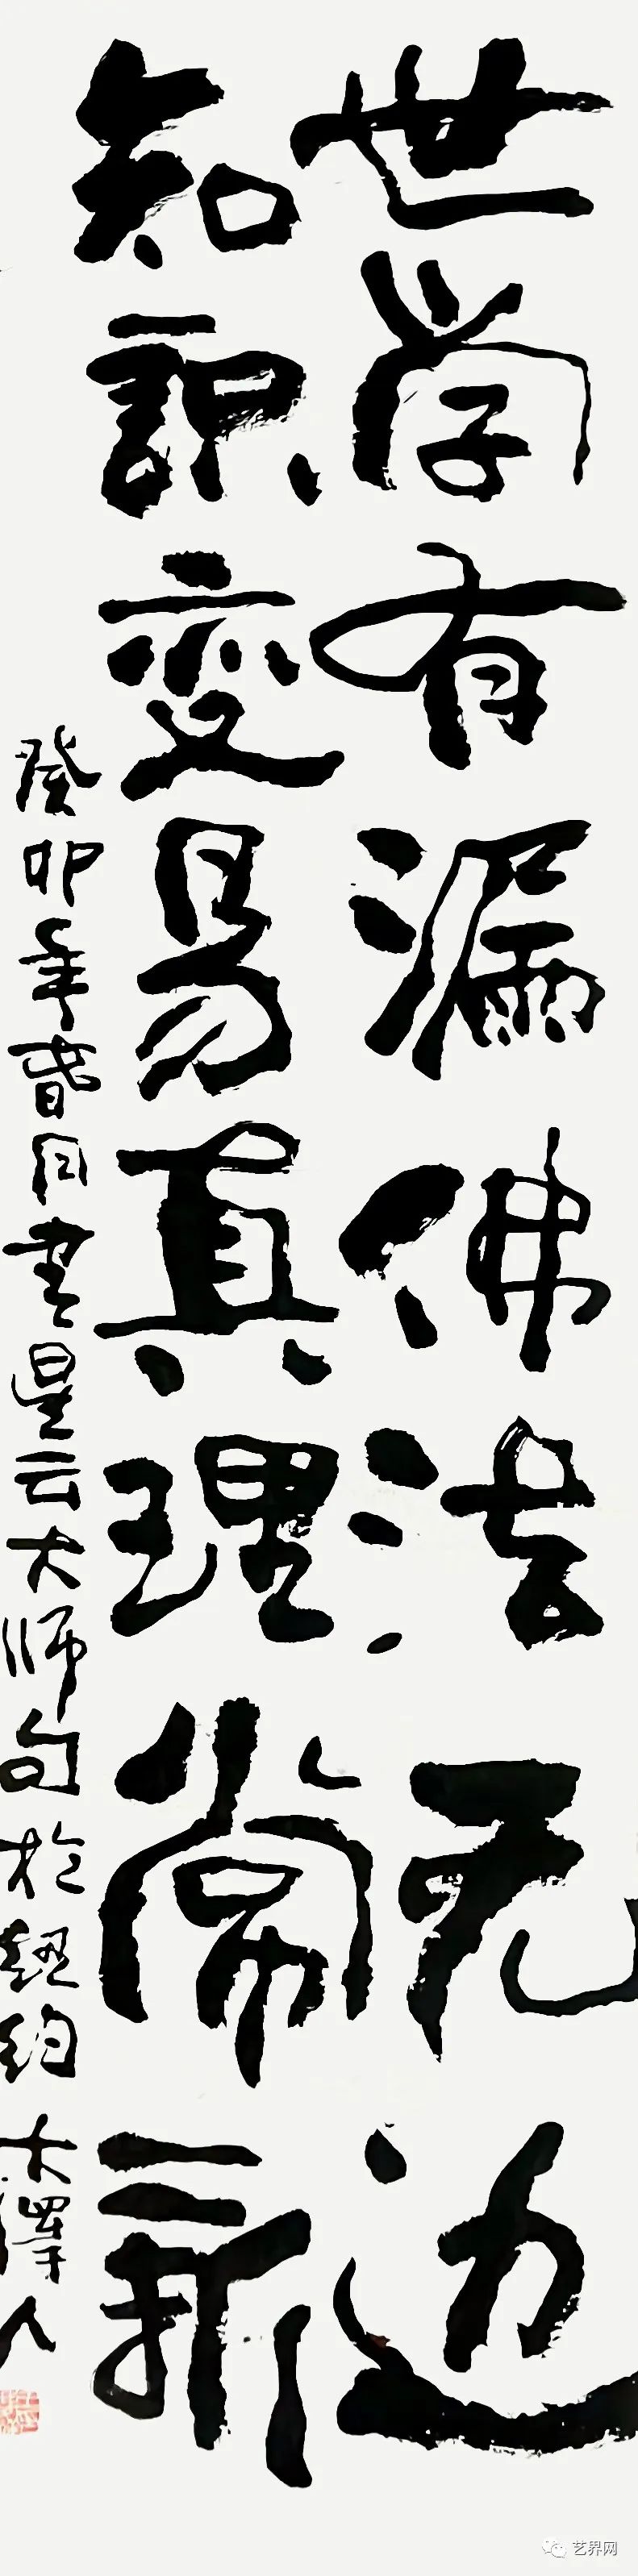 世学有漏佛法无边
知识变易真理常新
癸卯年春月书星云大师句於纽约 大泽人
艺界网